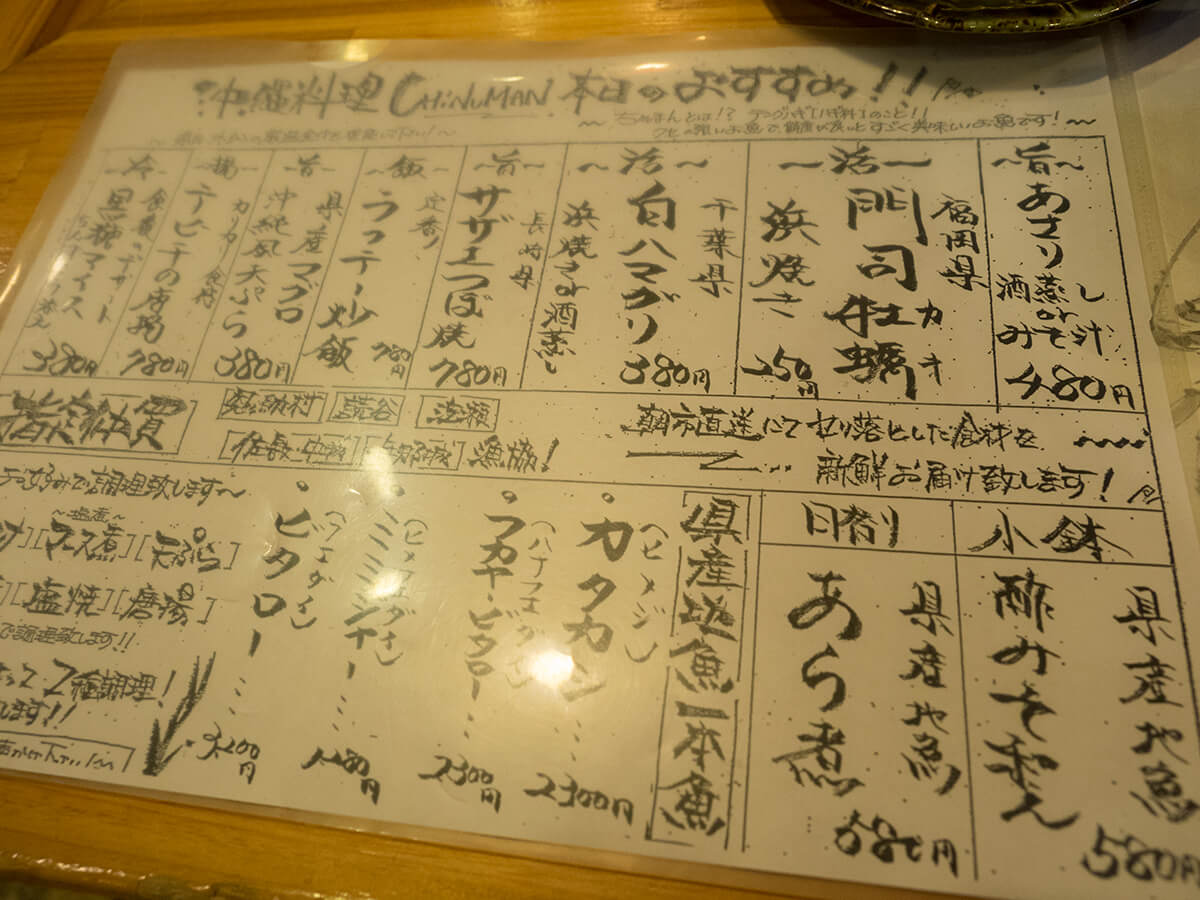 沖縄料理 CHiNUMAN 本日のおすすめ!!
ちぬまんとは!?
クセの強いお魚で、鮮度が良いとすごく美味しいお魚です!
~旨~
あさり
酒蒸し or みそ汁
480円
~活~
福岡県
門司牡蠣
カキ
浜焼き
250円
~活~
千葉県
白ハマグリ
浜焼き or 酒蒸し
380円
~旨~
長崎県
サザエつぼ焼
780円
~飯~
定番!
ラフテー炒飯
780円
~旨~
県産マグロ
沖縄風天ぷら
380円
~揚~
カリカリ食感
テビチの唐揚
780円
~冷~
食後のデザート
黒糖アイス
380円
朝市直送にてセリ落とした食材を
新鮮お届け致します!
恩納村
読谷
漁協!
指定仲買
小鉢
県産地魚
酢みそ和え
580円
日替り
県産地魚
あら煮
680円
県産近魚一本魚
・カタカシ…
(ヒメジ)
2300円
・フカヤービタロー…
(ハナフエダイ)
2300円
・ミミジャー…
(ヒメフエダイ)
・ビタロー…
(フエダイ)
お好みで調理致します~
~塩煮~
[マース煮][天ぷら]
[塩焼][唐揚]
で調理致します!!
2種調理!
します!!